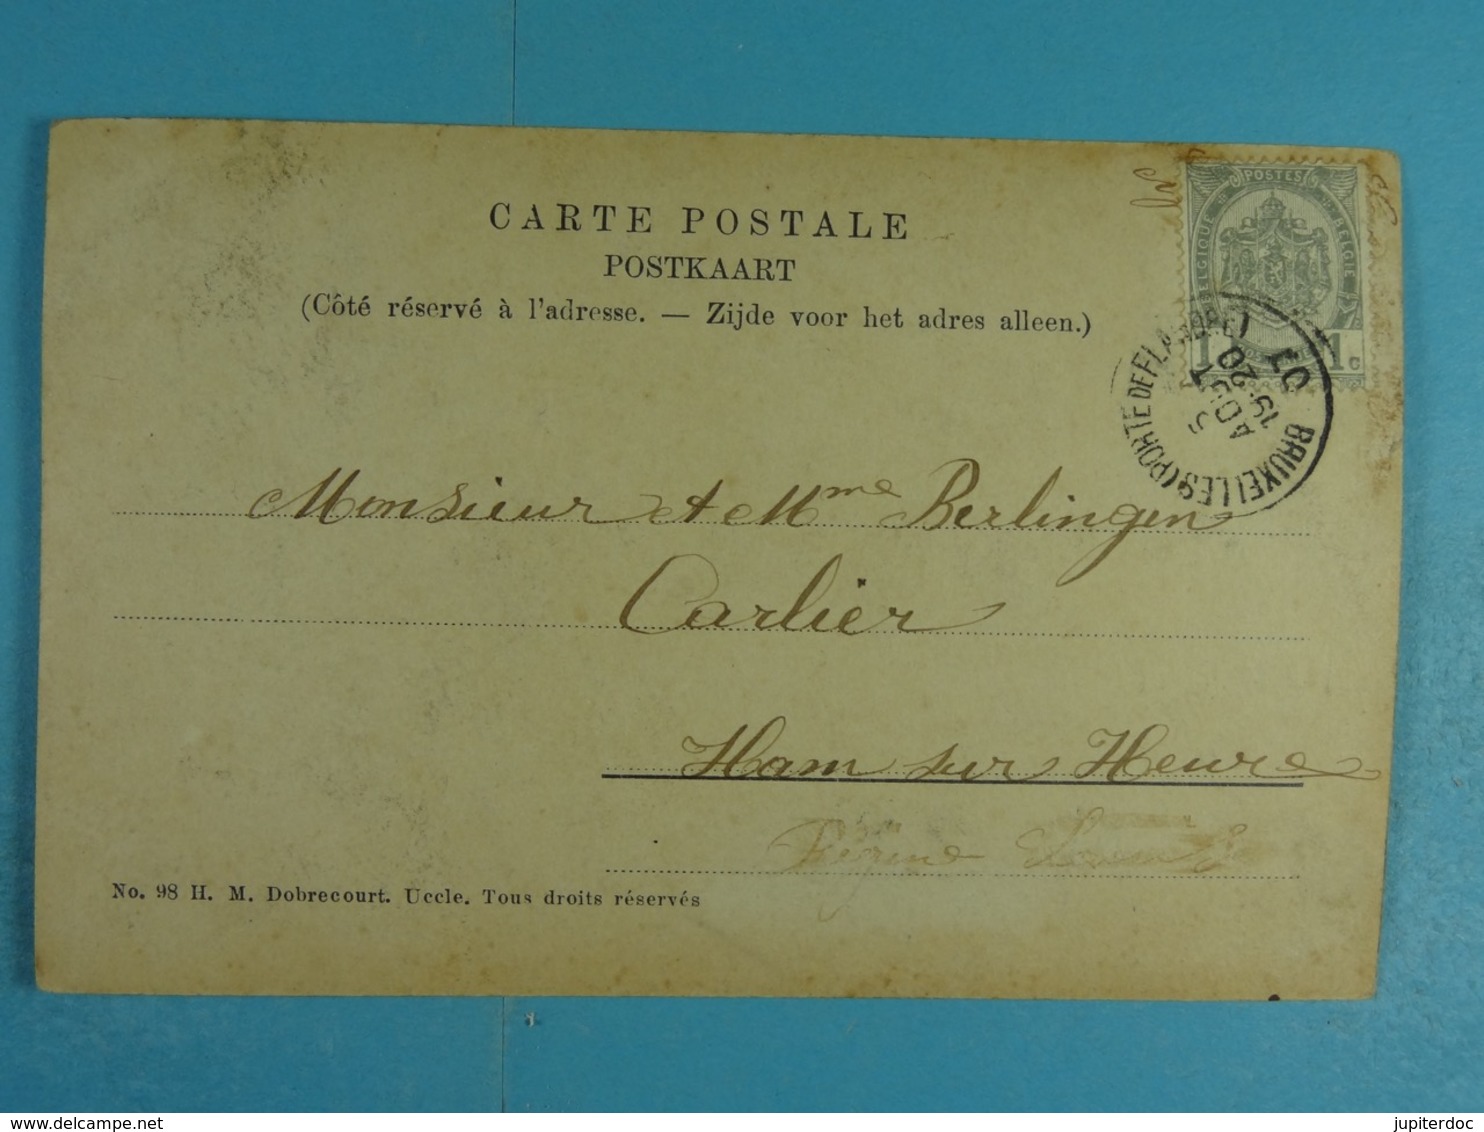 CARTE POSTALE
POSTKAART
(Côté réservé à l'adresse. — Zijde voor het adres alleen.)
POSTES
BELGIQUE BELGIE
1 1c
BRUXELLES (PORTE DE FLANDRE)
5
AOUT
19-20
01
Monsieur et Mme Berlingen
Carlier
Ham sur Heure
No. 98 H. M. Dobrecourt. Uccle. Tous droits réservés
delcampe.net
jupiterdoc